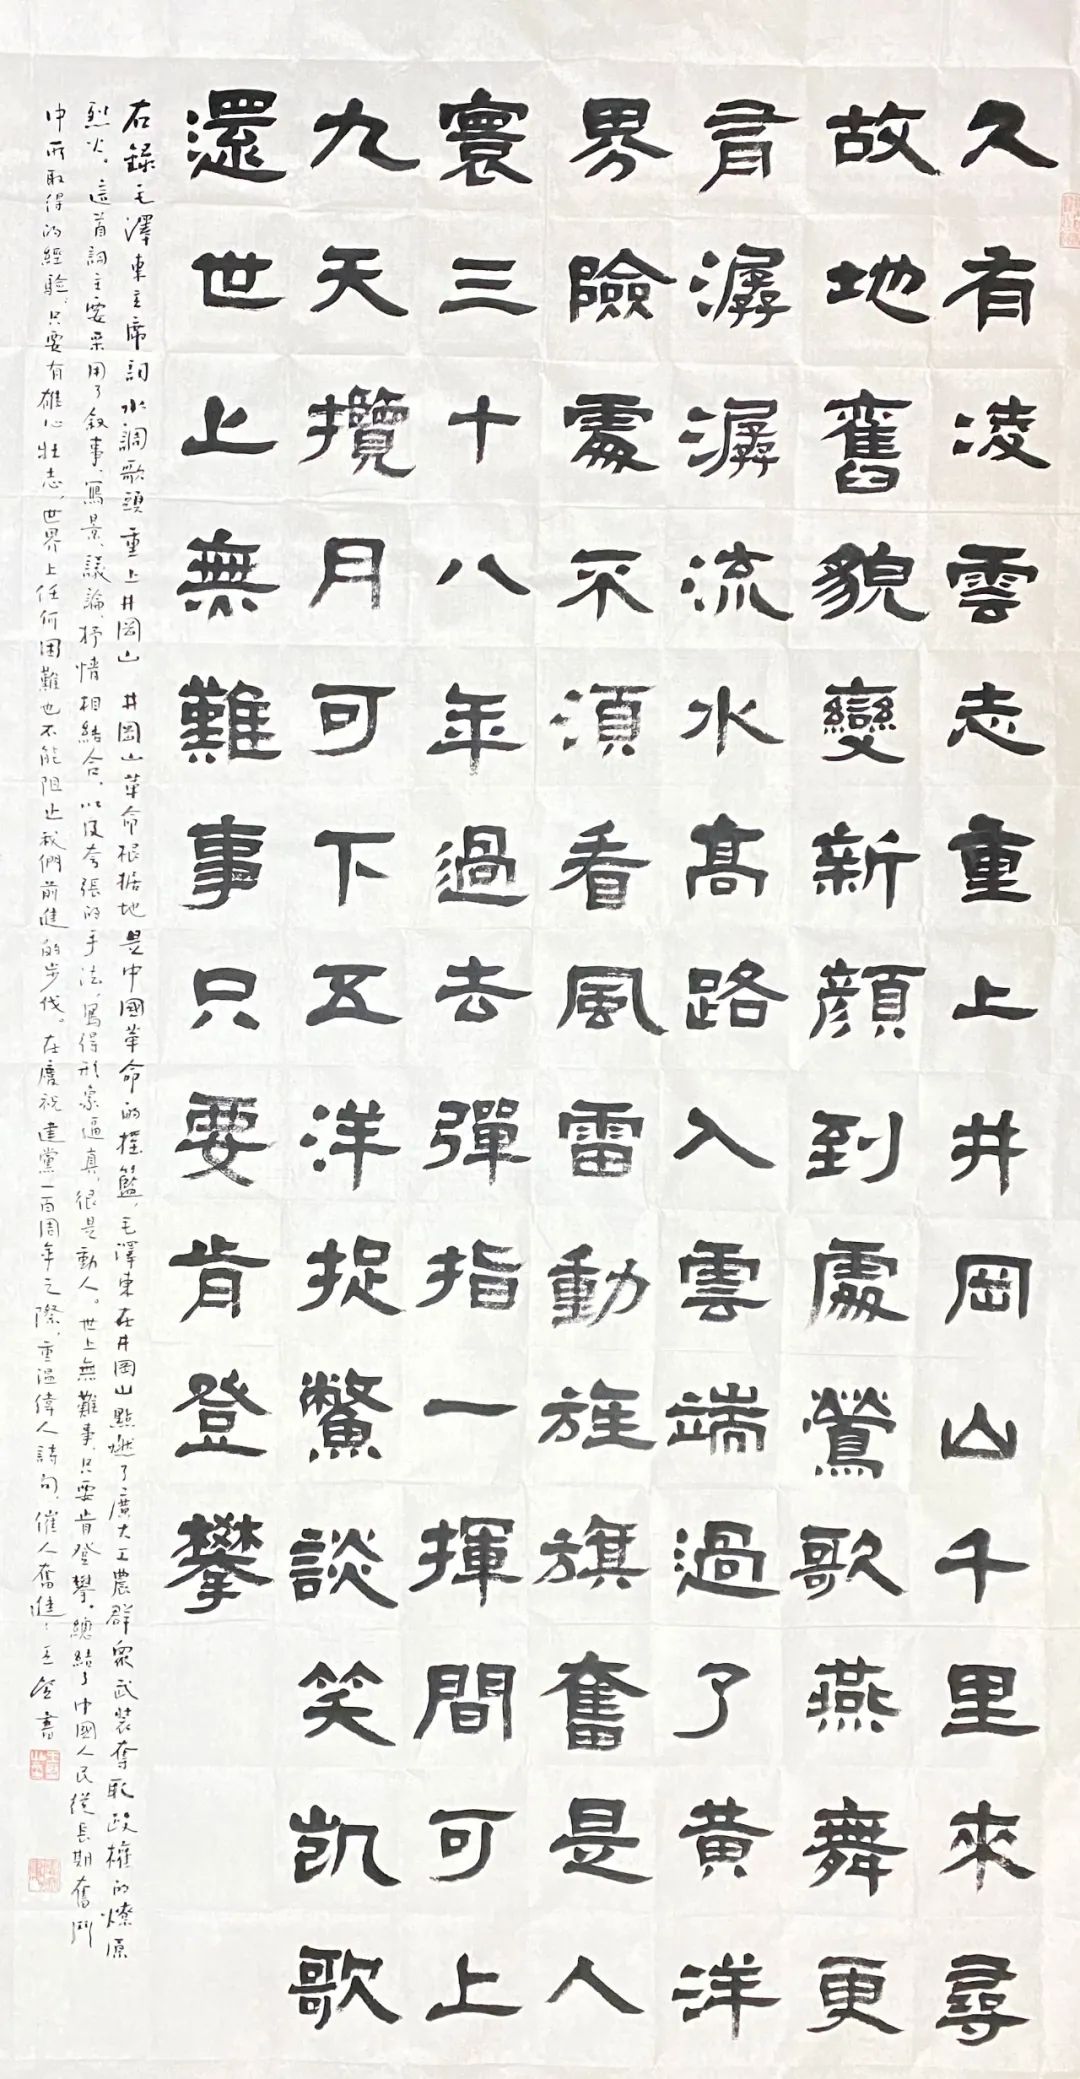 久有凌雲志重上井岡山千里來尋
故地舊貌變新顔到處鶯歌燕舞更
有潺潺流水高路入雲端過了黄洋
界險處不須看風雷動旌旗奮是人
寰三十八年過去彈指一揮間可上
九天攬月可下五洋捉鱉談笑凱歌
還世上無難事只要肯登攀
右録毛澤東主席詞水調歌頭重上井岡山 井岡山革命根据地是中國革命的摇籃，毛澤東在井岡山點燃了廣大工農群衆武装奪取政權的燎原
烈火。這首詞主要采用了叙事、寫景、議論、抒情相結合，以及夸張的手法，寫得形象逼真，很是動人。世上無難事，只要肯登攀，總結了中國人民從長期奮鬥
中所取得的經驗，只要有雄心壯志，世界上任何困難也不能阻止我們前進的步伐。在慶祝建黨一百周年之際，重温偉人詩句，催人奮進；王 書